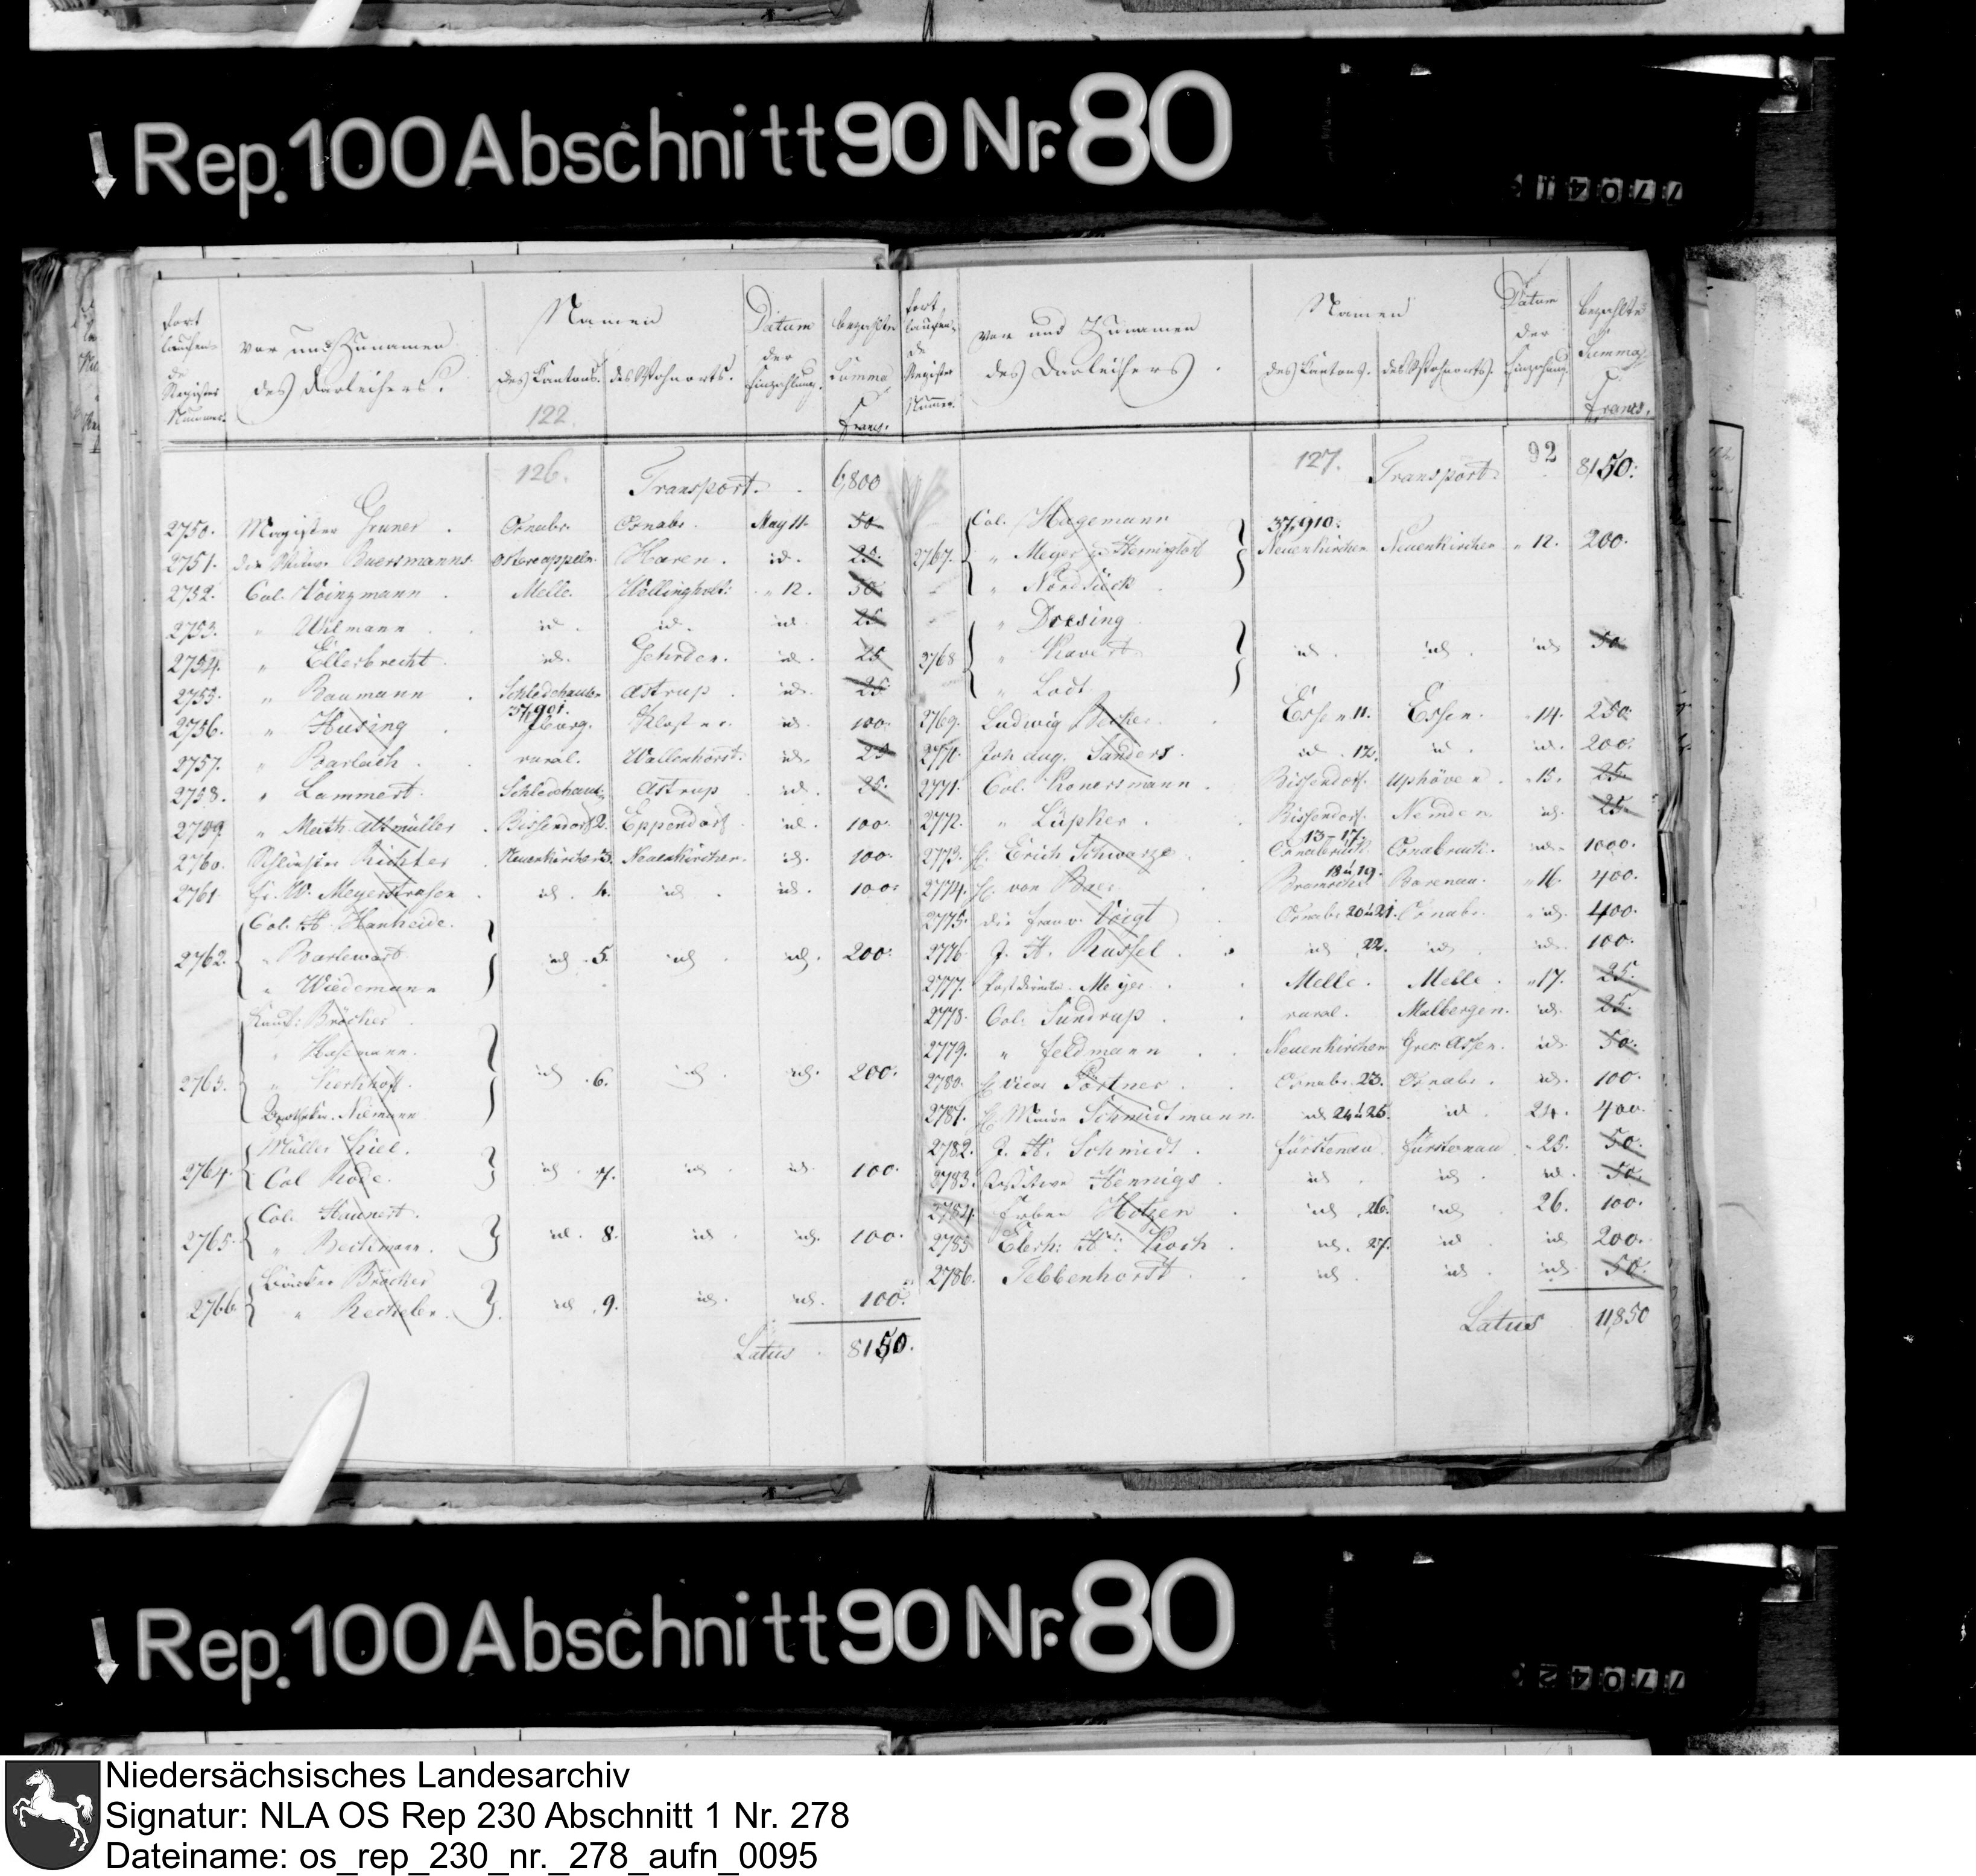 Rep. 100 Abschnitt 90 Nr. 80
77041
fort laufende Register Nummer. Vor und Zunamen des Darleihers. Namen des Kantons. des Wohnorts. Datum der Einzahlung. bezahlte Summa Francs.
122.
126. Transport. 6,800
2750. Magister Gruner Osnabr. Osnabr. May 11. 50
2751. die Buersmanns Ostercappeln. Haren. id. 25.
2752. Col. Melle. " 12. 50
2753. " Uhlmann id. id. id. 25
2754. " Ellerbrecht. id. Gehrden. id. 25
2755. " Baumann Schledehausen Astrup id. 25
37,901.
2756. " Hüsing Iburg. Kloster id. 100.
2757. " Barlach rural. Wallenhorst. id. 25
2758. " Lammert. Schledehaus. Astrup id. 25.
2759. " Meith. Altmüller Bissendorf 2. Eppendorf id. 100.
2760. Richter Neuenkirchen 3. Neuenkirchen. id. 100.
2761. Fr. W. Meyer id. 4. id. id. 100.
Col. H. Hanheide.
2762. " Barlewort id. 5. id. id. 200.
" Wiedemann
Kauf: Bröcker
" Hasemann.
2763. " Kerkhoff. id. 6. id. id. 200.
Apotheker Niemann
Müller Kiel.
2764. Col Rode. id. 7. id. id. 100.
Col. Haunert.
2765. " Beckmann. id. 8. id. id. 100.
Bröcker
2766. " id. 9. id. id. 100.
Latus 8150.
fort laufende Register Nummer. Vor und Zunamen des Darleihers. Namen des Kantons. des Wohnorts. Datum der Einzahlung. bezahlte Summa Francs.
127. Transport. 92 8150.
Col. Hagemann 37,910.
2767. " Meyer z. Neuenkirchen Neuenkirchen " 12. 200.
" Nordsiick
" Dresing
2768 " id. id. id. 50
" Lodt
2769. Ludwig Becker Essen 11. Essen. " 14. 250.
2770. Joh Aug. Sanders. id. 12. id. id. 200.
2771. Col. Konersmann. Bissendorf. Uphöven. " 15. 25.
2772. " Lüpker. Bissendorf. Nemden. id. 25.
13-17.
2773. H. Erich Schwarze Osnabrück. Osnabrück. id. 1000.
18 u 19.
2774. H. von Baer Bramsche. Barenau. " 16. 400.
2775. die Frau v. Voigt Osnabr. 20 u 21. Osnabr. id. 400.
2776. J. H. Russel. id. 22. id. id. 100.
2777. Meyer. Melle. Melle. " 17. 25.
2778. Col. Sundrup rural. Malbergen. id. 25.
2779. " Feldmann Neuenkirchen id. 50.
2780. H. Vicar Portner Osnabr. 23. Osnabr. id. 100.
2781. H. Maire Schmidtmann. id. 24 u 25. id. 24. 400.
2782. J. H. Schmidt. Fürstenau. Fürstenau " 25. 50.
2783. Hennigs id. id. id. 50.
2784. Erben Hotzen id. 26. id. 26. 100.
2785 H. Koch id. 27. id. id. 200.
2786. Tebbenhorst. id. id. id. 50.
Latus 11,850
Rep. 100 Abschnitt 90 Nr. 80
77042
Niedersächsisches Landesarchiv
Signatur: NLA OS Rep 230 Abschnitt 1 Nr. 278
Dateiname: os_rep_230_nr._278_aufn_0095